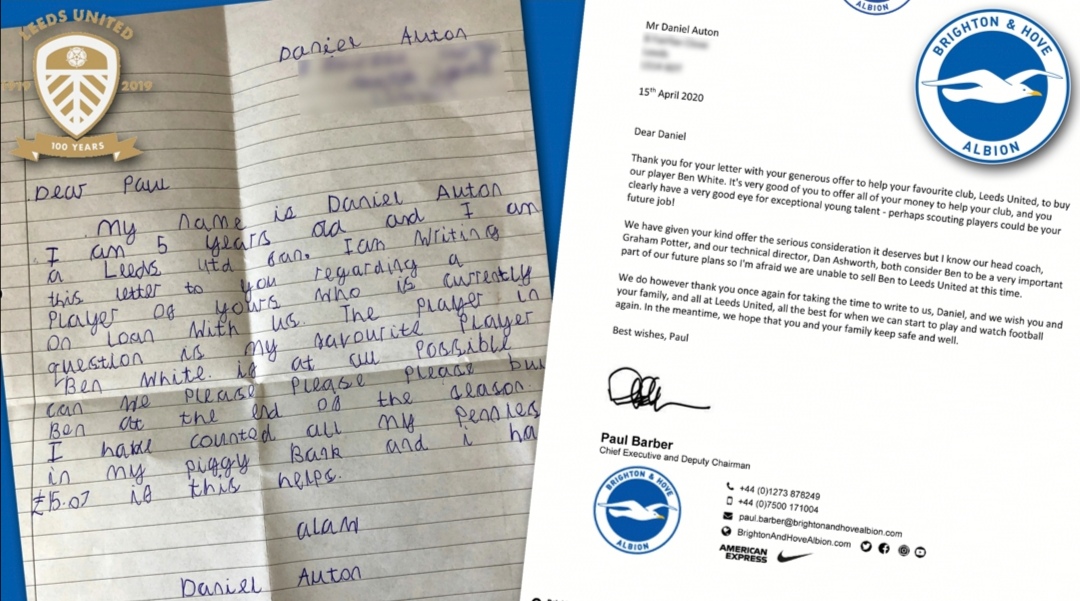 LEEDS UNITED
1919 2019
100 YEARS
Daniel Auton
Dear Paul
My name is Daniel Auton
I am 5 years old and I am
a Leeds utd fan. I an writing
this letter to you regarding a
Player of yours who is currently
on loan with us. The player in
question is my favourite player
Ben White. if at all possible
can we please please please bu
Ben at the end of the season
I have counted all my pennies
in my piggy Bank and i ha
£15.07 if this helps.
Daniel Auton
ALBION
BRIGHTON & HOVE
ALBION
Mr Daniel Auton
15th April 2020
Dear Daniel
Thank you for your letter with your generous offer to help your favourite club, Leeds United, to buy
our player Ben White. It's very good of you to offer all of your money to help your club, and you
clearly have a very good eye for exceptional young talent - perhaps scouting players could be your
future job!
We have given your kind offer the serious consideration it deserves but I know our head coach,
Graham Potter, and our technical director, Dan Ashworth, both consider Ben to be a very important
part of our future plans so I'm afraid we are unable to sell Ben to Leeds United at this time.
We do however thank you once again for taking the time to write to us, Daniel, and we wish you and
your family, and all at Leeds United, all the best for when we can start to play and watch football
again. In the meantime, we hope that you and your family keep safe and well.
Best wishes, Paul
Paul Barber
Chief Executive and Deputy Chairman
BRIGHTON & HOVE
ALBION
+44 (0)1273 878249
+44 (0)7500 171004
paul.barber@brightonandhovealbion.com
BrightonAndHoveAlbion.com
AMERICAN
EXPRESS